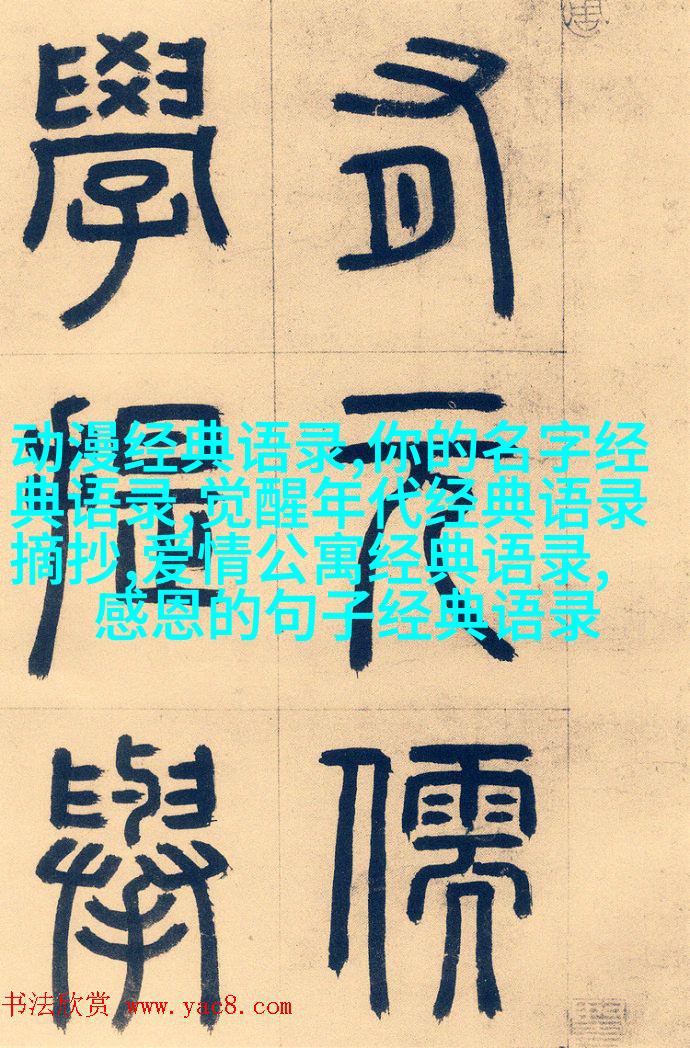 有元儒
學提舉
动漫经典语录,你的名字经
典语录,觉醒年代经典语录
摘抄,爱情公寓经典语录,
感恩的句子经典语录
书法欣赏 www.yac8.com